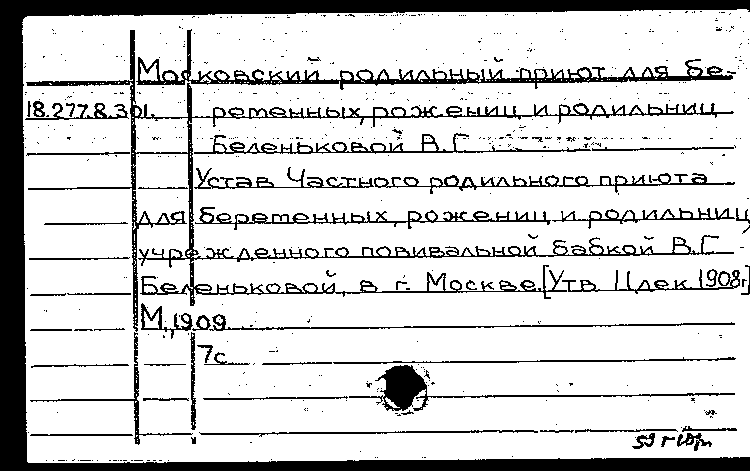 Московский родильный приют для бе-
18.277.8.301. ретенных, рожениц и родильниц
Беленьковой В.Г.
Устав Частного родильного приюта
для беретенных, рожениц и родильниц,
учрежденного повивальной бабкой В.Г.
Беленьковой, в г. Москве. [Утв. 11 дек. 1908г.]
М., 1909.
7с.